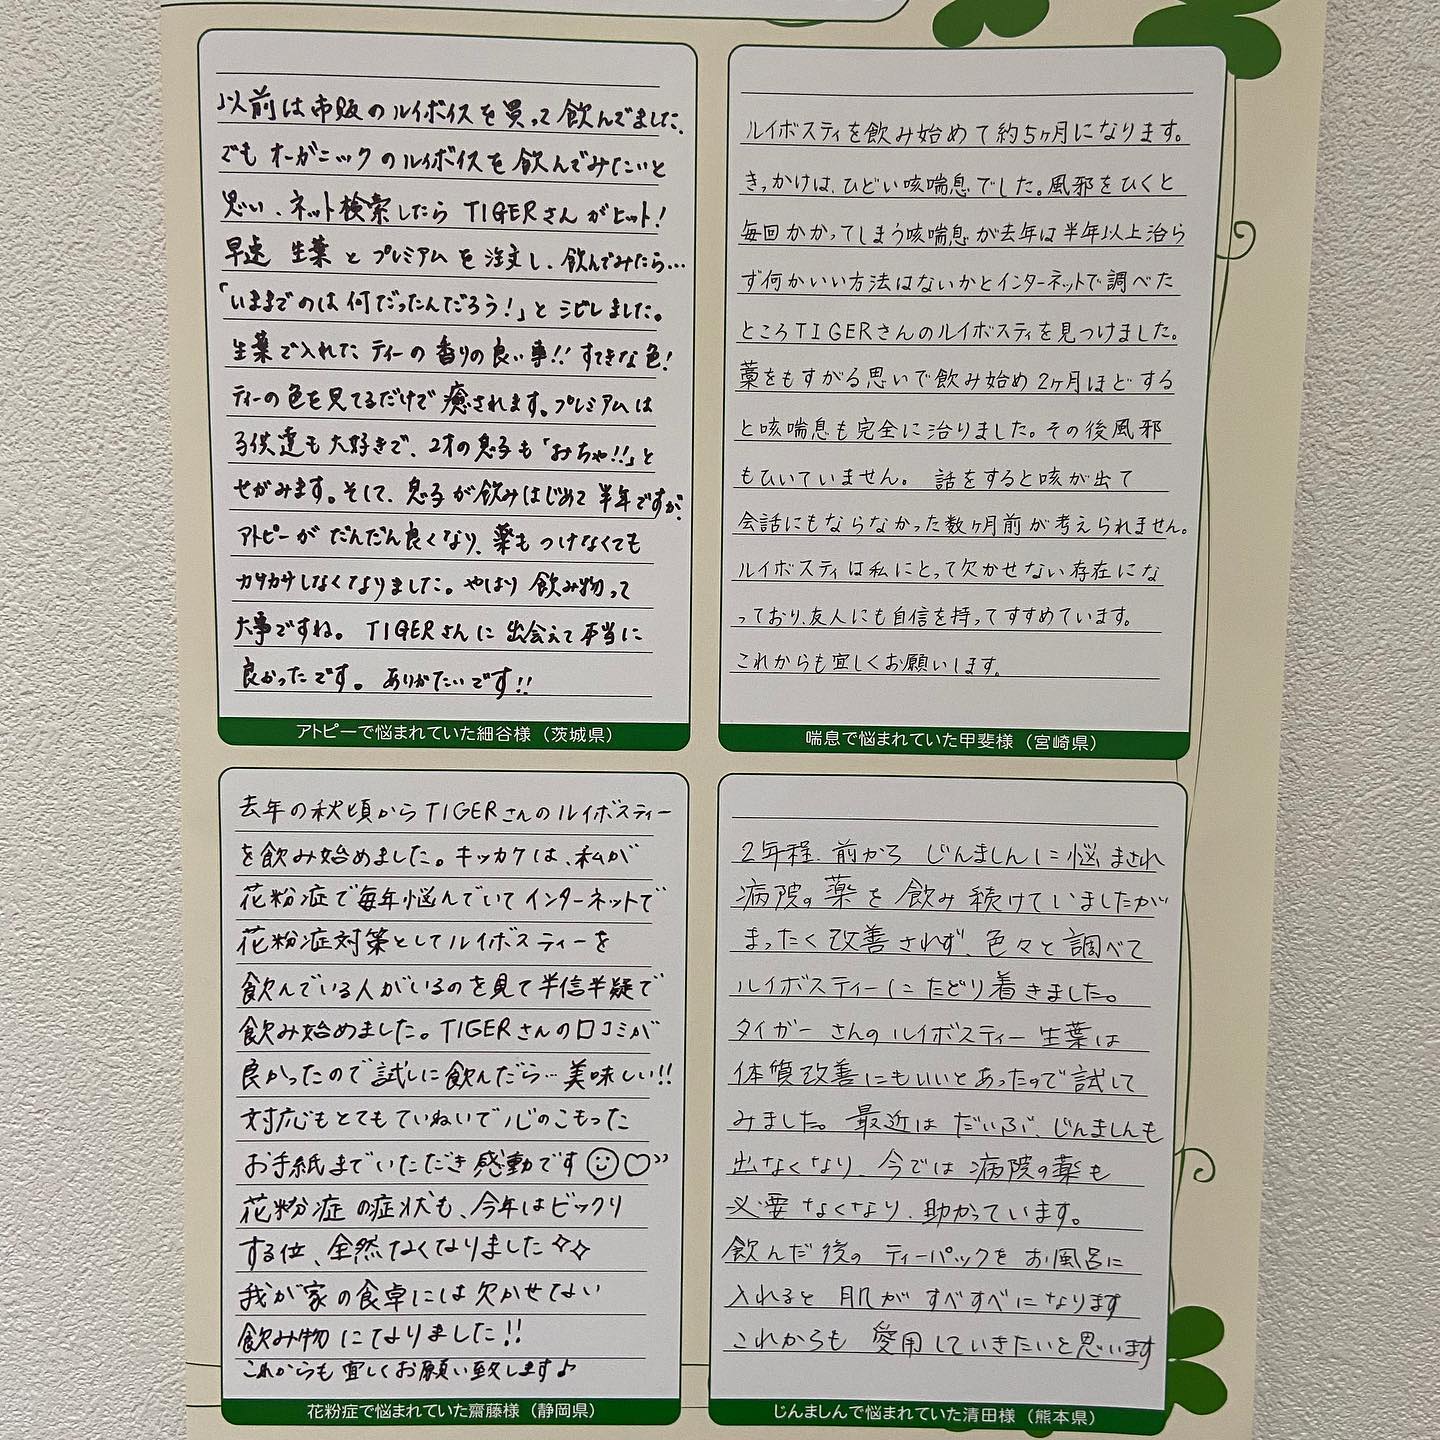 以前は市販のルイボイスを買って飲んでました、
でもオーガニックのルイボイスを飲んでみたいと
思い、ネット検索したらTIGERさんがヒット!
早速 生葉とプレミアムを注文し、飲んでみたら…
「いままでのは何だったんだろう!」とシビレました。
生葉で入れたティーの香りの良い事!!すてきな色!
ティーの色を見てるだけで癒されます。プレミアムは
子供達も大好きで、2才の息子も「おちゃ!!」と
せがみます。そして、息子が飲みはじめて半年ですが、
アトピーがだんだん良くなり、薬もつけなくても
カサカサしなくなりました。やはり飲み物って
大事ですね。TIGERさんに出会えて本当に
良かったです。ありがたいです!!
アトピーで悩まれていた細谷様(茨城県)
ルイボスティを飲み始めて約5ヶ月になります。
きっかけは、ひどい咳喘息でした。風邪をひくと
毎回かかってしまう咳喘息が去年は半年以上治ら
ず何かいい方法はないかとインターネットで調べた
ところTIGERさんのルイボスティを見つけました。
藁をもすがる思いで飲み始め2ヶ月ほどする
と咳喘息も完全に治りました。その後風邪
もひいていません。 話をすると咳が出て
会話にもならなかった数ヶ月前が考えられません。
ルイボスティは私にとって欠かせない存在にな
っており、友人にも自信を持ってすすめています。
これからも宜しくお願いします。
喘息で悩まれていた甲斐様(宮崎県)
去年の秋頃からTIGERさんのルイボスティー
を飲み始めました。キッカケは、私が
花粉症で毎年悩んでいてインターネットで
花粉症対策としてルイボスティーを
飲んでいる人がいるのを見て半信半疑で
飲み始めました。TIGERさんの口コミが
良かったので試しに飲んだら…美味しい!!
対応もとてもていねいで心のこもった
お手紙までいただき感動です☺♡"
花粉症の症状も、今年はビックリ
する位、全然なくなりました✧✧
我が家の食卓には欠かせない
飲み物になりました!!
これからも宜しくお願い致します♪
花粉症で悩まれていた齋藤様(静岡県)
2年程、前から じんましんに悩まされ
病院の薬を飲み続けていましたが
まったく改善されず、色々と調べて
ルイボスティーにたどり着きました。
タイガーさんのルイボスティー生葉は
体質改善にもいいとあったので試して
みました。最近はだいぶ、じんましんも
出なくなり、今では病院の薬も
必要なくなり、助かっています。
飲んだ後のティーパックをお風呂に
入れると肌がすべすべになります
これからも愛用していきたいと思います
じんましんで悩まれていた清田様(熊本県)